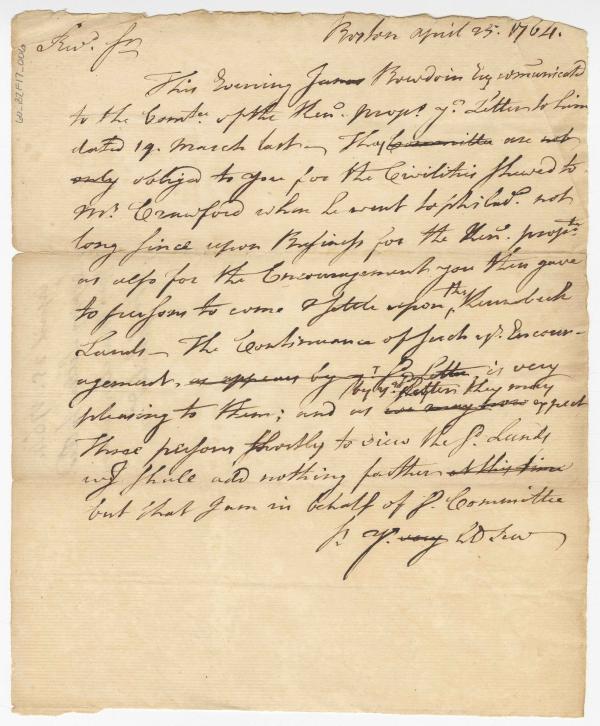 Boston April 25. 1764.
Revd. Sr
This Evening James Bowdoin Esq communicated
to the Comtee. of the Ken. propr. yr. Letter to him
dated 19. March last — They Committee are not
only obliged to you for the Civilities shewed to
Mr. Crawford when he went to philada. not
long since upon Business for the Ken. proprs
as also for the Encouragement you then gave
to persons to come & settle upon the Kennebeck
Lands — The Continuance of such yr. Encour-
agement, as appears by yr. Sd. Letter is very
by yr. sd Letter they may
pleasing to them; and as we may now expect
those persons shortly to view the Sd. Lands
we shall add nothing farther at this time
but that I am in behalf of sd. Committee
Sr. Yr. very
60.22F17_006